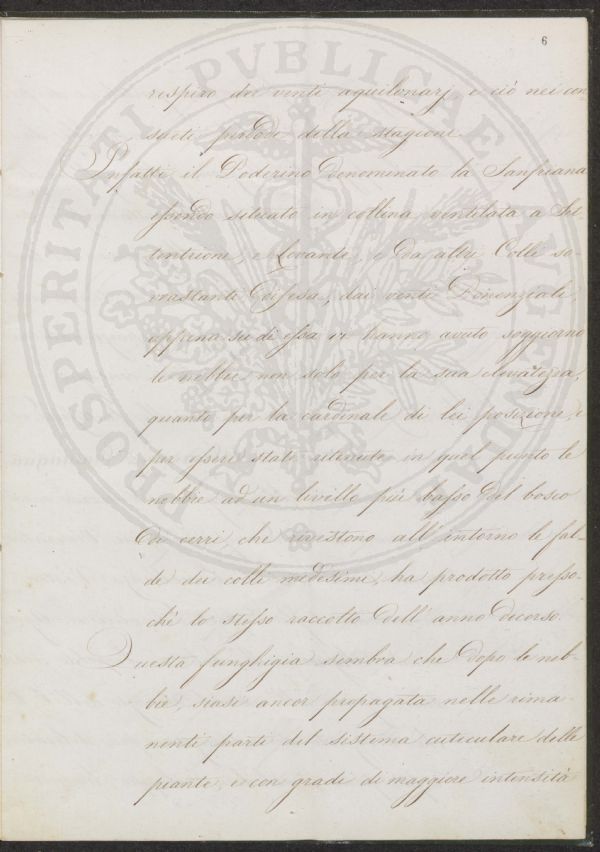 6
respiro dei venti aquilonarj, e ciò nei con-
sueti periodi della stagione.
Infatti il Poderino denominato la Sanfriana
essendo situato in collina ventilata a Set-
tentrione, e Levante, e da altri Colli so-
vrastanti difesa, dai venti Provenziali,
appena su di essa vi hanno avuto soggiorno
le nebbie non solo per la sua elevatezza,
quanto per la cardinale di lei posizione, e
per essere state ritenute in quel punto le
nebbie ad un livello più basso del bosco
di cerri, che rivestono all' intorno le fal-
de dei colli medesimi, ha prodotto presso-
chè lo stesso raccolto dell' anno decorso.
Questa funghigia sembra che dopo le neb-
bie, siasi ancor propagata nelle rima-
nenti parti del sistema cuticulare delle
piante, e con gradi di maggiore intensità
PROSPERITATI PVBLICAE AVGENDAE